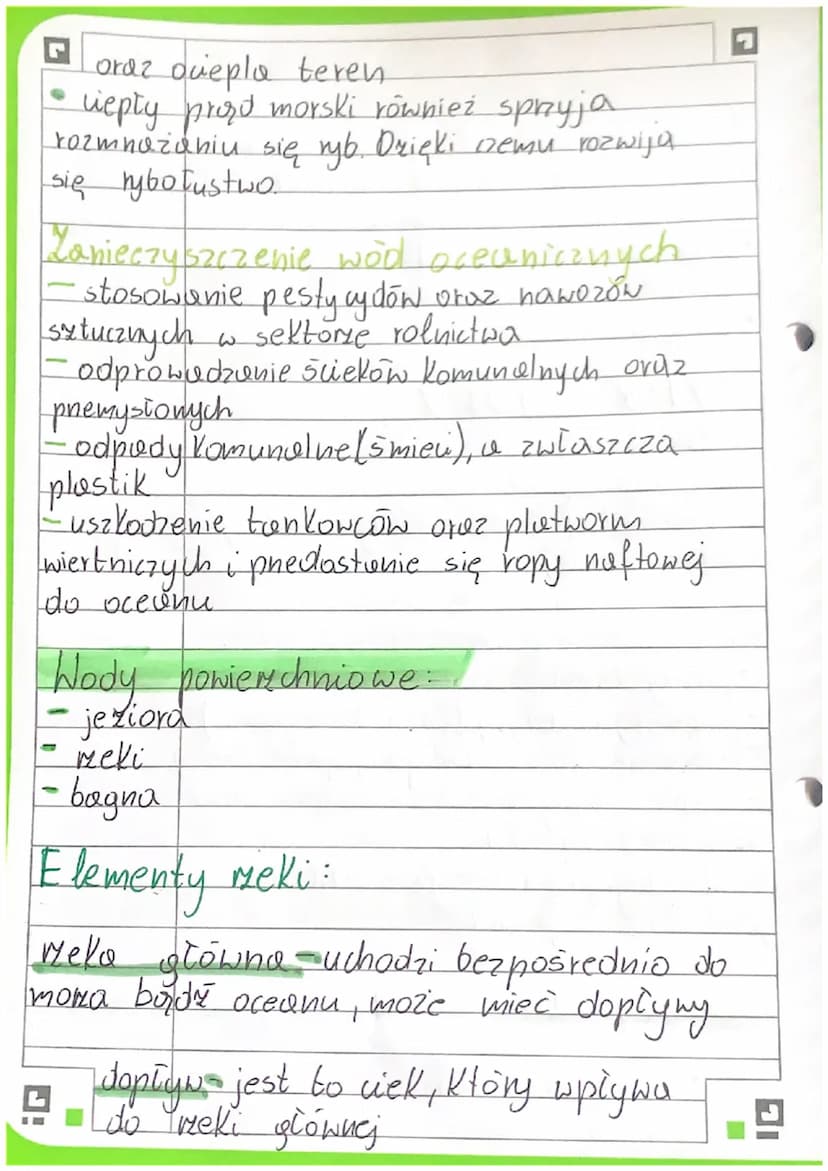 oraz ociepla teren
• ciepły prąd morski również sprzyja
rozmnażaniu się ryb. Dzięki czemu rozwija
się rybołustwo.
Zanieczyszczenie wód oceanicznych
- stosowanie pestycydów oraz nawozów
sztucznych w sektorze rolnictwa
- odprowadzanie ścieków komunalnych oraz
przemysłowych
- odpady komunalne (śmieci), a zwłaszcza
plastik
- uszkodzenie tankowców oraz platworm
wiertniczych i przedostanie się ropy naftowej
do oceanu
Wody powierzchniowe:
- jeziora
- rzeki
- bagna
Elementy rzeki:
rzeka główna - uchodzi bezpośrednio do
morza bądź oceanu, może mieć dopływy
dopływ - jest to ciek, który wpływa
do rzeki głównej